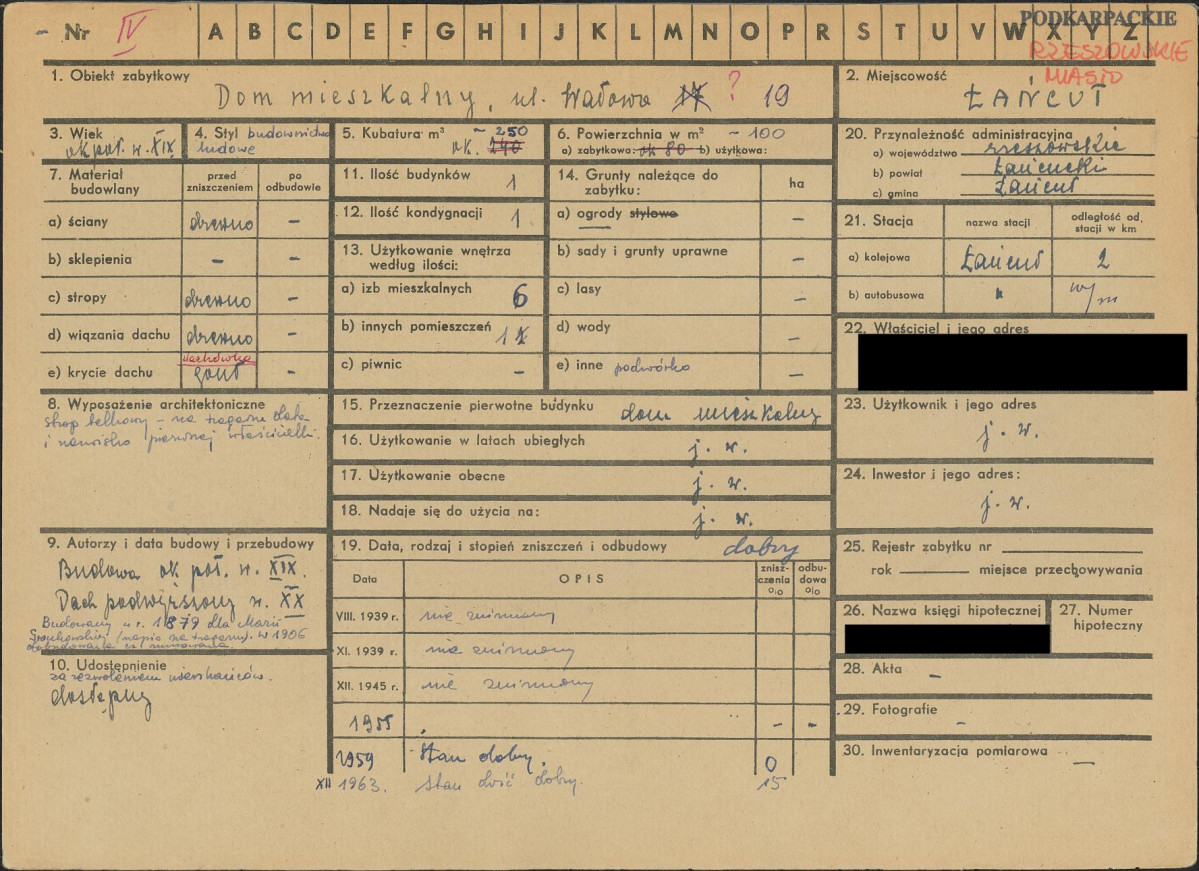 Nr IV A B C D E F G H I J K L M N O P R S T U V W X Y Z
PODKARPACKIE
RZESZOWSKIE
MIASTO
1. Obiekt zabytkowy
Dom mieszkalny, ul. Wałowa 17 ? 19
2. Miejscowość
ŁAŃCUT
3. Wiek
ok poł. w. XIX
4. Styl budownictwo
ludowe
5. Kubatura m³ ~ 250
ok. 240
6. Powierzchnia w m² ~ 100
a) zabytkowa: ok 80 b) użytkowa:
20. Przynależność administracyjna
a) województwo rzeszowskie
b) powiat Łańcucki
c) gmina Łańcut
7. Materiał budowlany
przed zniszczeniem
po odbudowie
a) ściany drewno –
b) sklepienia – –
c) stropy drewno –
d) wiązania dachu drewno –
dachówka
e) krycie dachu gont –
11. Ilość budynków 1
12. Ilość kondygnacji 1
13. Użytkowanie wnętrza
według ilości:
a) izb mieszkalnych 6
b) innych pomieszczeń 1
c) piwnic –
14. Grunty należące do
zabytku: ha
a) ogrody stylowe –
b) sady i grunty uprawne –
c) lasy –
d) wody –
e) inne podwórko –
21. Stacja
nazwa stacji
odległość od
stacji w km
a) kolejowa Łańcut 2
b) autobusowa " w/m
22. Właściciel i jego adres
8. Wyposażenie architektoniczne
strop belkowy – na tragarzu data
i nazwisko pierwszej właścicielki.
15. Przeznaczenie pierwotne budynku dom mieszkalny
16. Użytkowanie w latach ubiegłych j. w.
17. Użytkowanie obecne j. w.
18. Nadaje się do użycia na: j. w.
23. Użytkownik i jego adres
j. w.
24. Inwestor i jego adres:
j. w.
9. Autorzy i data budowy i przebudowy
Budowa ok poł. w. XIX.
Dach podwyższony w. XX
Budowany w r. 1879 dla Marii
(napis na tragarzu). w 1906
10. Udostępnienie
za zezwoleniem mieszkańców.
dostępny
19. Data, rodzaj i stopień zniszczeń i odbudowy dobry
Data
OPIS
znisz-
czenia
%
odbu-
dowa
%
VIII. 1939 r. nie zniszczony
XI. 1939 r. nie zniszczony
XII. 1945 r. nie zniszczony
1955 . – –
1959 Stan dobry. 0
XII 1963. stan dość dobry. 15
25. Rejestr zabytku nr
rok miejsce przechowywania
26. Nazwa księgi hipotecznej
27. Numer
hipoteczny
28. Akta –
29. Fotografie –
30. Inwentaryzacja pomiarowa –